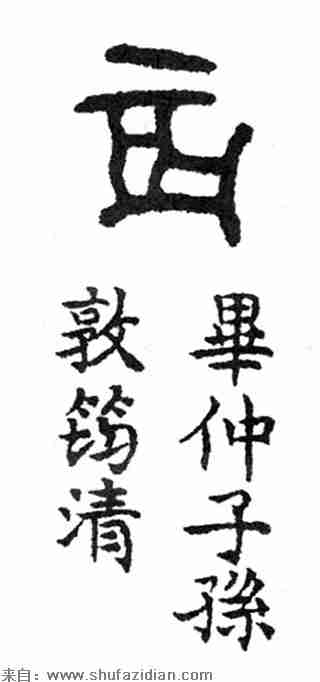 畢仲子孫
敦筠清
来自：www.shufazidian.com